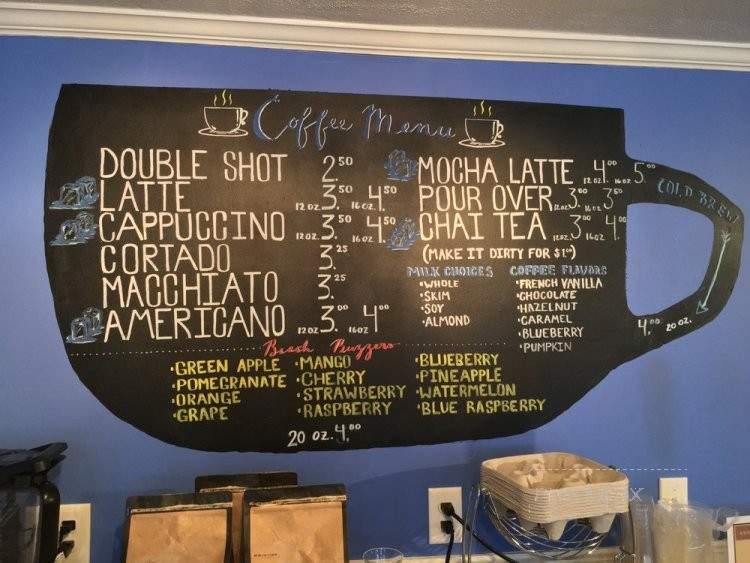 Coffee Menu
DOUBLE SHOT 2.50
LATTE 12 OZ. 3.50 16 OZ. 4.50
CAPPUCCINO 12 OZ. 3.50 16 OZ. 4.50
CORTADO 3.25
MACCHIATO 3.25
AMERICANO 12 OZ 3.00 16 OZ 4.00
MOCHA LATTE 12 OZ. 4.00 16 OZ. 5.00
POUR OVER 12 OZ. 3.00 16 OZ. 3.50
CHAI TEA 12 OZ. 3.00 16 OZ 4.00
(MAKE IT DIRTY FOR $1.00)
MILK CHOICES
•WHOLE
•SKIM
•SOY
•ALMOND
COFFEE FLAVORS
•FRENCH VANILLA
•CHOCOLATE
•HAZELNUT
•CARAMEL
•BLUEBERRY
•PUMPKIN
COLD BREW
4.00 20 OZ.
•GREEN APPLE
•POMEGRANATE
•ORANGE
•GRAPE
•MANGO
•CHERRY
•STRAWBERRY
•RASPBERRY
•BLUEBERRY
•PINEAPPLE
•WATERMELON
•BLUE RASPBERRY
20 OZ. 4.00